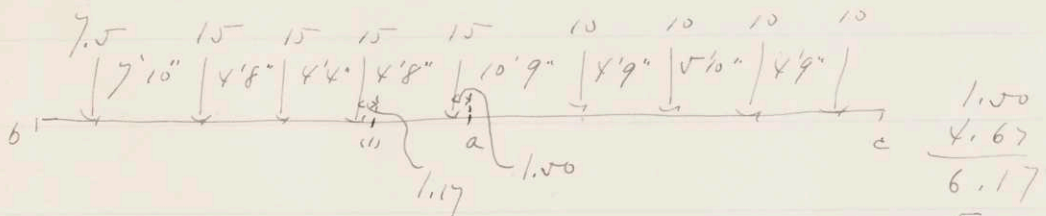 7.5 15 15 15 15 10 10 10 10
7'10" 4'8" 4'4" 4'8" 10'9" 4'9" 5'10" 4'9"
b (1) a c
1.17 1.50
1.50
4.67
6.17